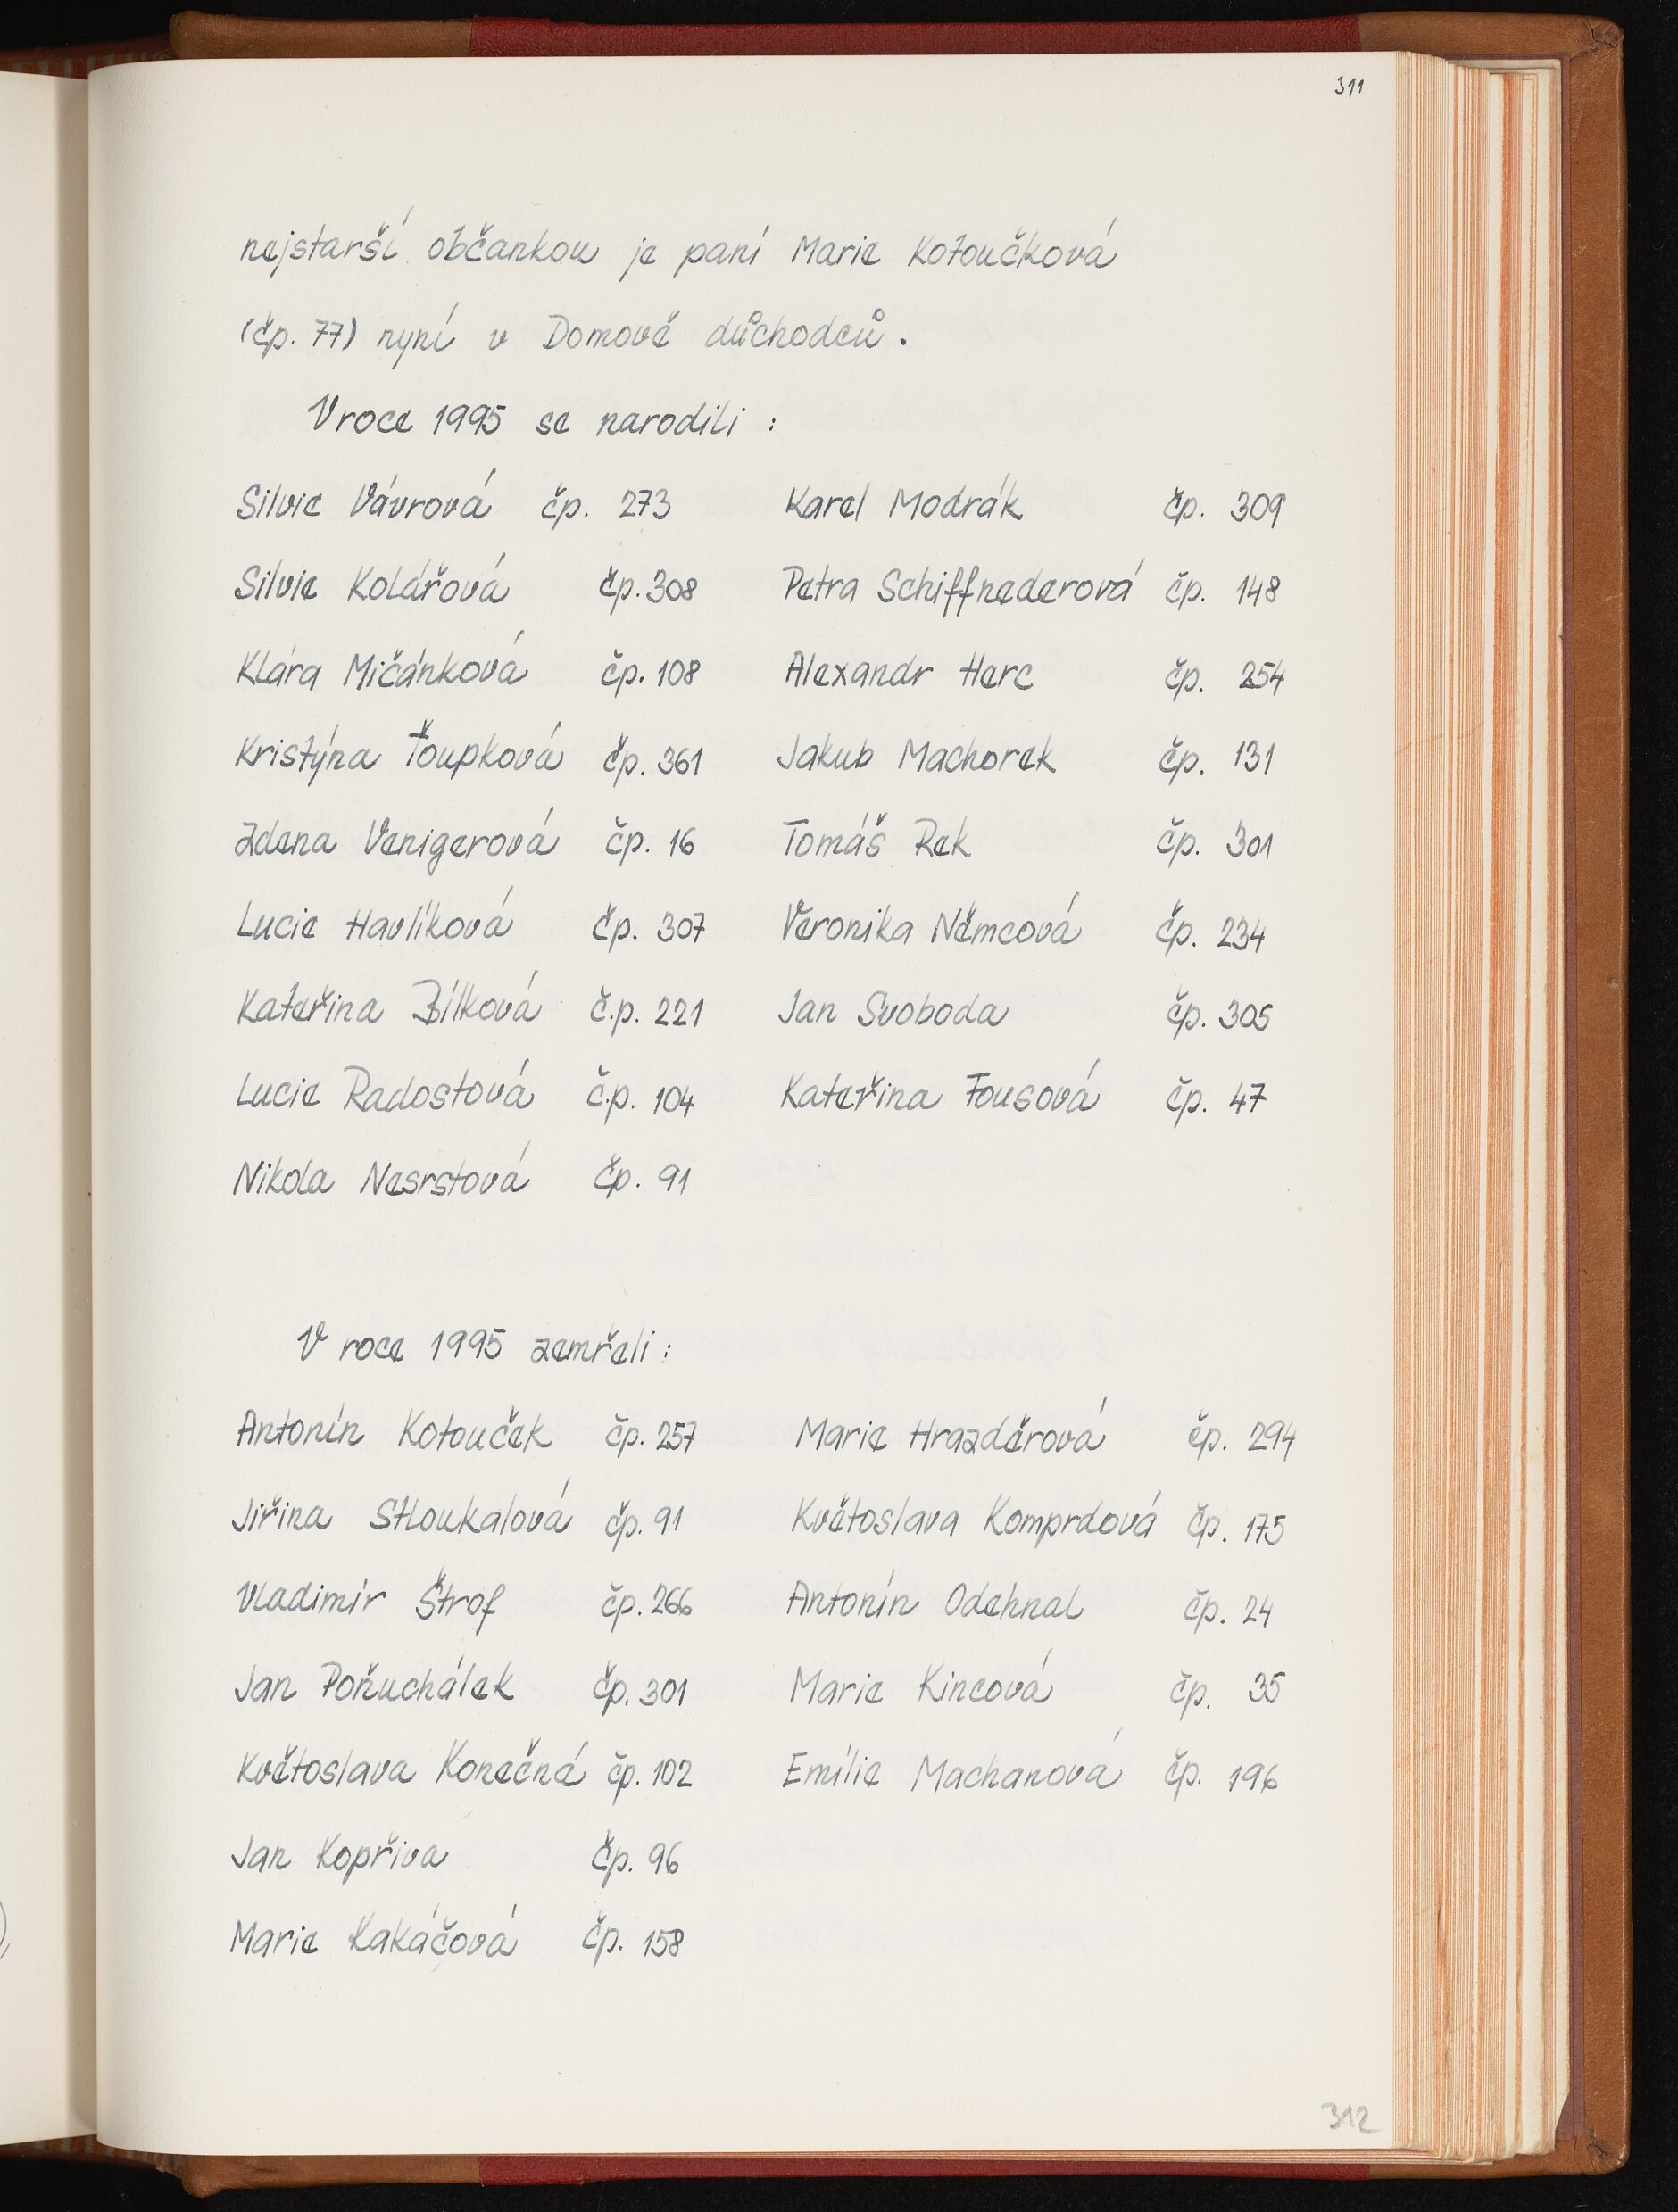 311
nejstarší občankou je paní Marie Kotoučková
(čp. 77) nyní v Domově důchodců.
V roce 1995 se narodili :
Silvie Vávrová čp. 273 Karel Modrák čp. 309
Silvie Kolářová čp. 308 Petra Schiffnederová čp. 148
Klára Mičánková čp. 108 Alexandr Herc čp. 254
Kristýna Ťoupková čp. 361 Jakub Machorek čp. 131
Zdena Venigerová čp. 16 Tomáš Rek čp. 301
Lucie Havlíková čp. 307 Veronika Němcová čp. 234
Kateřina Bílková č.p. 221 Jan Svoboda čp. 305
Lucie Radostová č.p. 104 Kateřina Fousová čp. 47
Nikola Nesrstová čp. 91
V roce 1995 zemřeli :
Antonín Kotouček čp. 257 Marie Hrazděrová čp. 294
Jiřina Stloukalová čp. 91 Květoslava Komprdová čp. 175
Vladimír Štrof čp. 266 Antonín Odehnal čp. 24
Jan Poňuchálek čp. 301 Marie Kincová čp. 35
Květoslava Konečná čp. 102 Emílie Machanová čp. 196
Jan Kopřiva čp. 96
Marie Kakáčová čp. 158
312